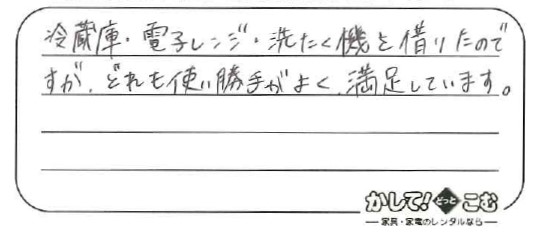 冷蔵庫・電子レンジ・洗たく機を借りたので
すが、どれも使い勝手がよく、満足しています。
かして!どっとこむ
家具・家電のレンタルなら